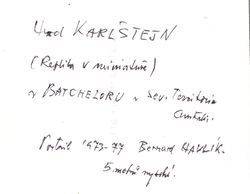 Hrad KARLŠTEJN
(Replika v miniatuře)
v BATCHELORU v Sev. Teritoriu
Postavil 1973-77 Bernard HAVLÍK.
5 metrů vysoké.